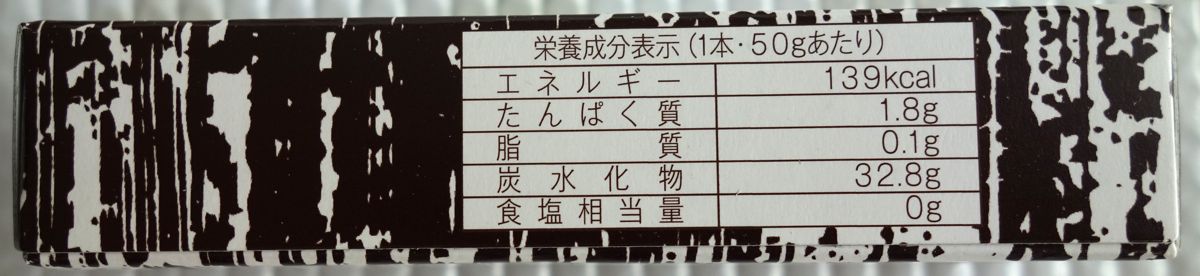 栄養成分表示(1本・50gあたり)
エネルギー 139kcal
たんぱく質 1.8g
脂質 0.1g
炭水化物 32.8g
食塩相当量 0g